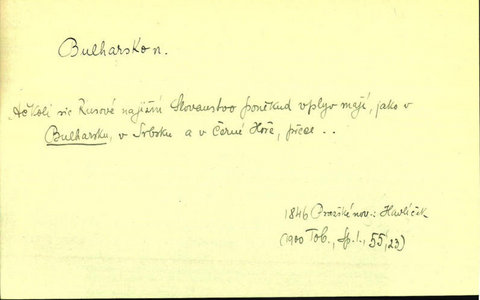 Bulharsko n.
Ačkoli sic Rusové na jižní Slovanstvo poněkud vplyv mají, jako v
Bulharsku, v Srbsku a v Černé Hoře, přece ..
1846 Pražské nov.: Havlíček
(1900 Tob., Sp. I., 55,23)